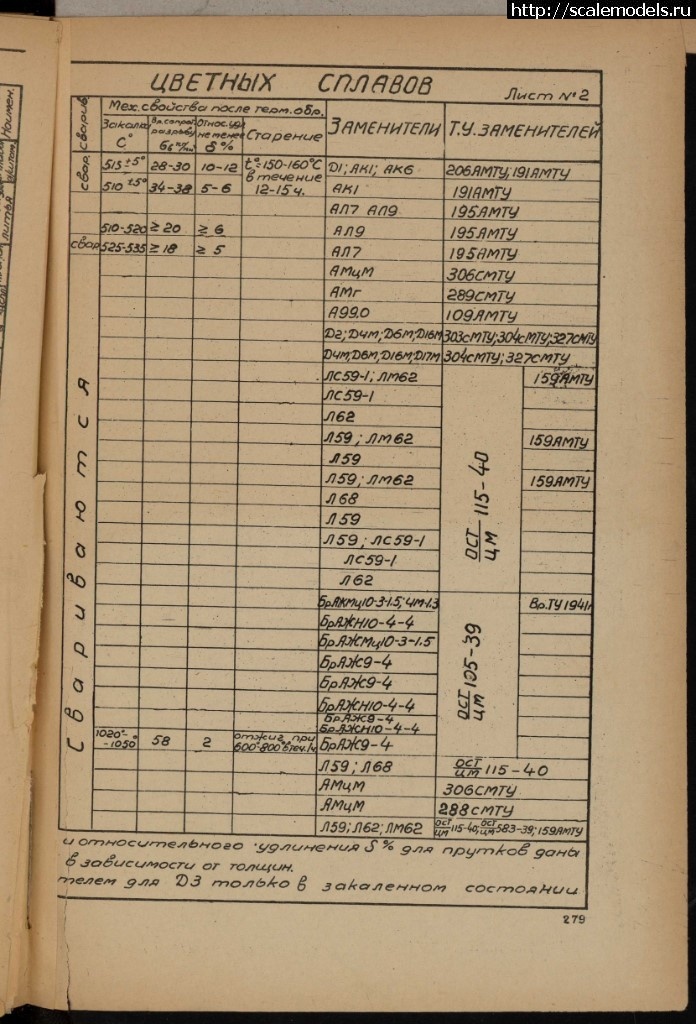 http://scalemodels.ru
ЦВЕТНЫХ СПЛАВОВ
Лист №2
Мех. свойства после терм. обр.
Закалка С° разрыву не менее δ% Старение ЗАМЕНИТЕЛИ Т.У. ЗАМЕНИТЕЛЕЙ
свар. 515±5° 28-30 10-12 t°=150-160°С в течение 12-15ч. Д1; АК1; АК6 206АМТУ; 191АМТУ
510±5° 34-38 5-6 АК1 191АМТУ
АЛ7 АЛ9 195АМТУ
510-520 ≥20 ≥6 АЛ9 195АМТУ
свар 525-535 ≥18 ≥5 АЛ7 195АМТУ
АМцМ 306СМТУ
АМг 289СМТУ
А99.0 109АМТУ
Д2; Д4М; Д6М; Д16М 303СМТУ; 304СМТУ; 327СМТУ
Д4М; Д6М; Д16М; Д17М 304СМТУ; 327СМТУ
Свариваются
ЛС59-1; ЛМ62 159АМТУ
ЛС59-1
Л62
Л59; ЛМ62 159АМТУ
Л59
Л59; ЛМ62 159АМТУ
Л68
Л59
Л59; ЛС59-1
ЛС59-1
Л62
ОСТ/ЦМ 115-40
БрАЖМц10-3-1.5; Вр.ТУ 1941г
БрАЖН10-4-4
БрАЖМц10-3-1.5
БрАЖ9-4
БрАЖ9-4
БрАЖН10-4-4
БрАЖ9-4
БрАЖН10-4-4
1020°-1050° 58 2 отжиг при БрАЖ9-4
ОСТ/ЦМ 105-39
Л59; Л68 ОСТ/ЦМ 115-40
АМцМ 306СМТУ
АМцМ 288СМТУ
Л59; Л62; ЛМ62 ОСТ/ЦМ 115-40; ОСТ/ЦМ 583-39; 159АМТУ
и относительного удлинения δ% для прутков дана
в зависимости от толщин.
телем для Д3 только в закаленном состоянии
279